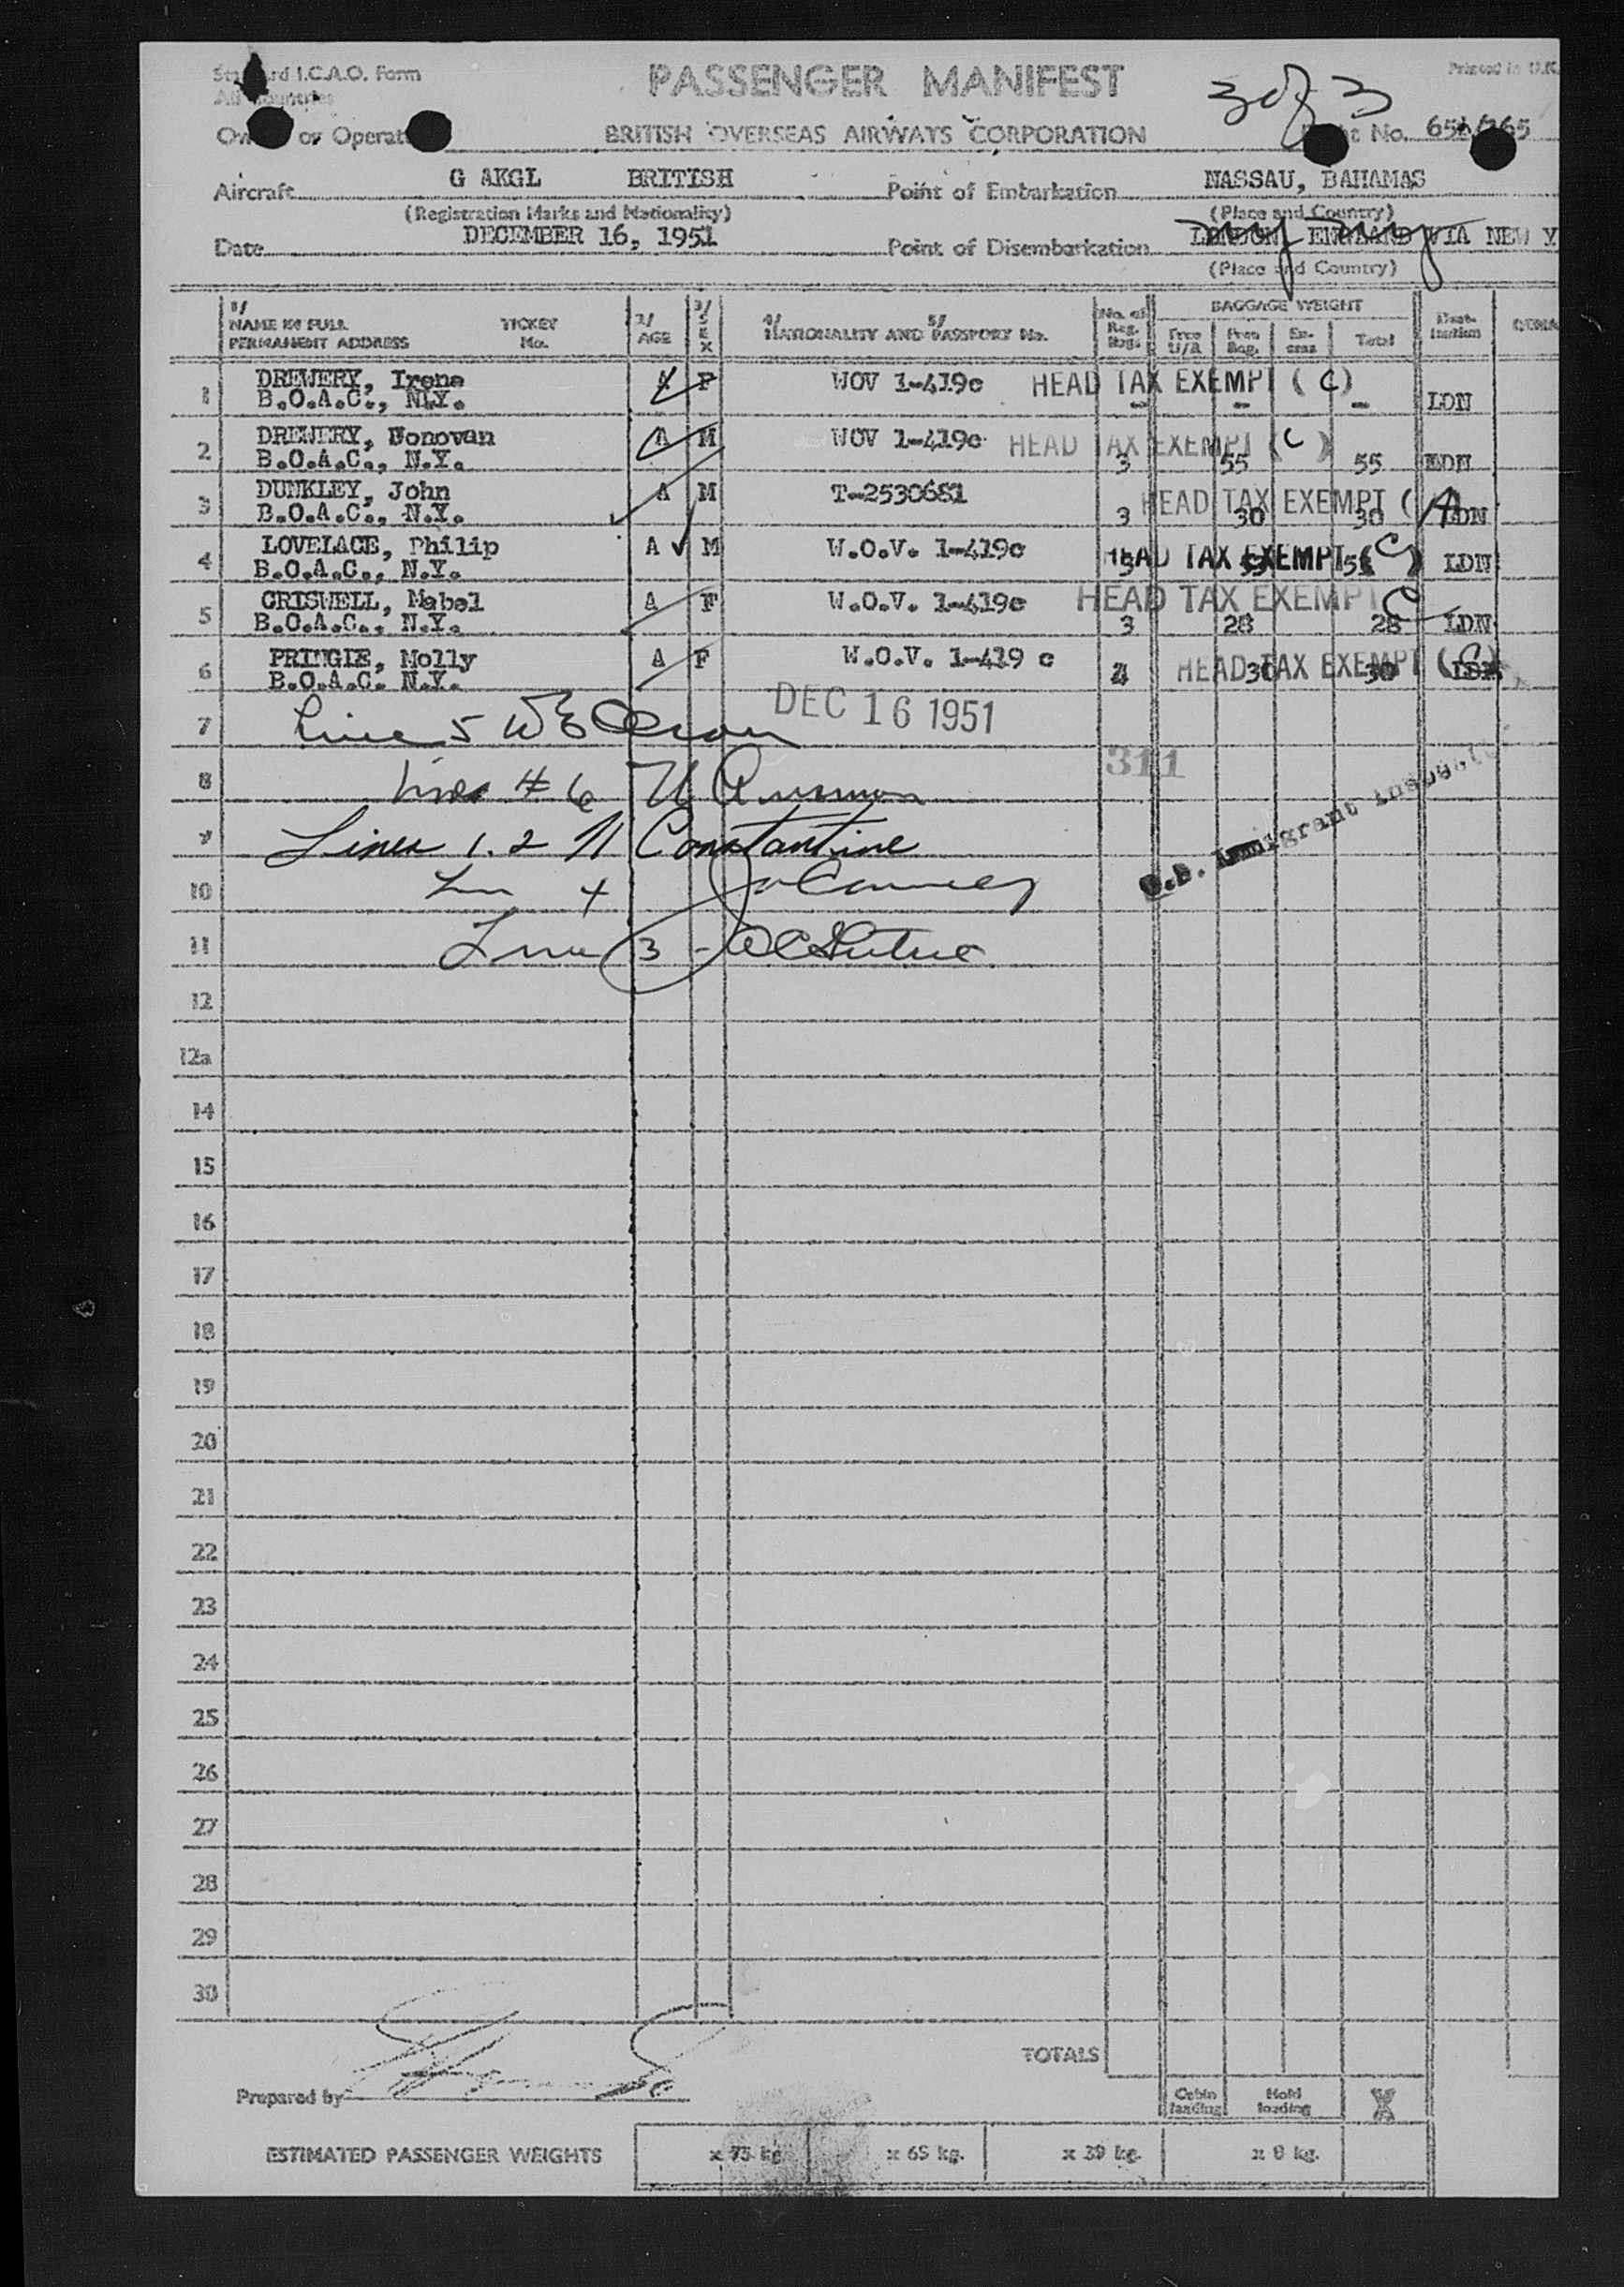 Standard I.C.A.O. Form
All Countries
PASSENGER MANIFEST
3 of 3
Printed in U.K.
Owner or Operator
BRITISH OVERSEAS AIRWAYS CORPORATION
No.
Aircraft G AKGL BRITISH
Point of Embarkation NASSAU, BAHAMAS
(Registration Marks and Nationality)
(Place and Country)
Date DECEMBER 16, 1951
Point of Disembarkation LONDON, ENGLAND VIA NEW Y
(Place and Country)
1/ NAME IN FULL PERMANENT ADDRESS
TICKET No.
2/ AGE
3/ SEX
4/ 5/ NATIONALITY AND PASSPORT No.
No. of Reg. Bags
BAGGAGE WEIGHT
Free U/A
Free Bag.
Ex-cess
Total
Dest-ination
1 DREWERY, Irene A F WOV 1-419c HEAD TAX EXEMPT (C)
B.O.A.C., N.Y. - - - LDN
2 DREWERY, Donovan A M WOV 1-419c HEAD TAX EXEMPT (C)
B.O.A.C., N.Y. 3 55 55 LDN
3 DUNKLEY, John A M T-2530681 HEAD TAX EXEMPT (A
B.O.A.C., N.Y. 3 30 30 LDN
4 LOVELACE, Philip A M W.O.V. 1-419c HEAD TAX EXEMPT (C)
B.O.A.C., N.Y. LDN
5 CRISWELL, Mabel A F W.O.V. 1-419c HEAD TAX EXEMPT C
B.O.A.C., N.Y. 3 28 28 LDN
6 PRINGLE, Molly A F W.O.V. 1-419 c HEAD TAX EXEMPT (C)
B.O.A.C. N.Y. 30 30
DEC 16 1951
7 Line 5 W E
311
8 Lines # 6
U.S. Immigrant Inspector
9 Lines 1. 2 N Constantine
10 4
11 Line 3 -
12
12a
14
15
16
17
18
19
20
21
22
23
24
25
26
27
28
29
30
TOTALS
Prepared by
Cabin loading
Hold loading
ESTIMATED PASSENGER WEIGHTS x 75 kg. x 65 kg. x 39 kg. x 8 kg.